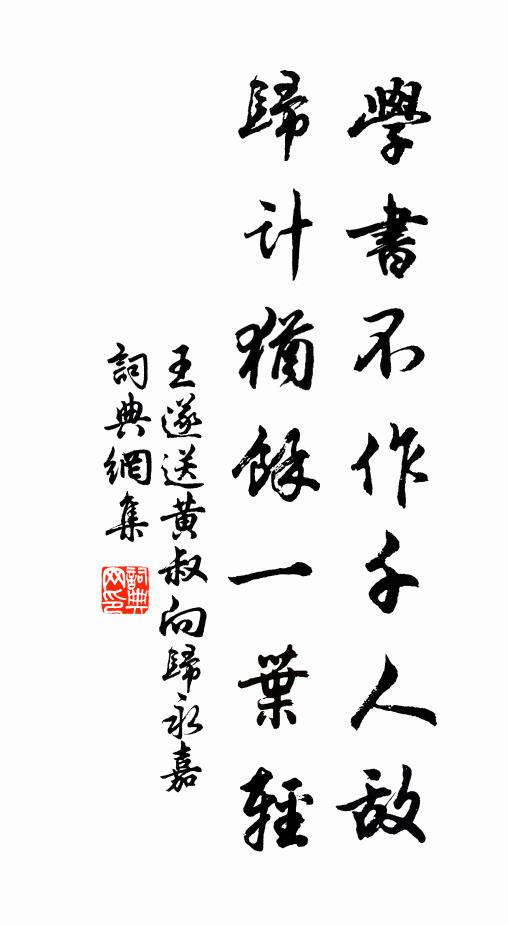 學書不作千人敌
歸计猶餘一葉輕
王遂送黄叔向歸永嘉
詞典網集
詞典网印